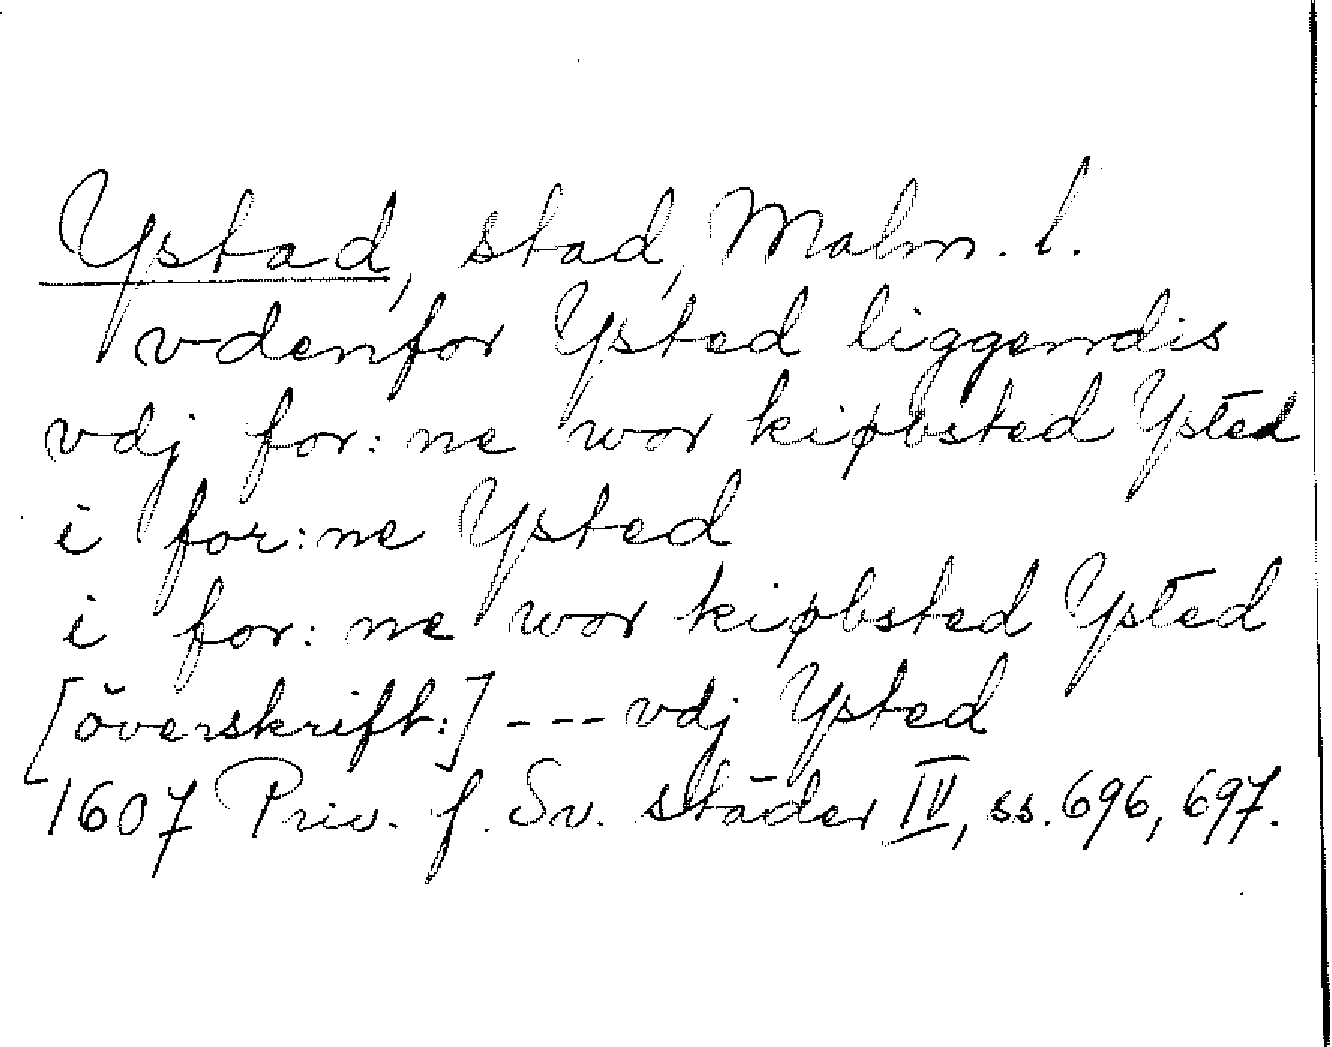 Ystad, stad, Malm. l.
vdenfor Ysted liggendis
vdj for:ne wor kiøbsted Ysted
i for:ne Ysted
i for:ne wor kiøbsted Ysted
[överskrift:] --- vdj Ysted
1607 Priv. f. Sv. städer IV, ss. 696, 697.